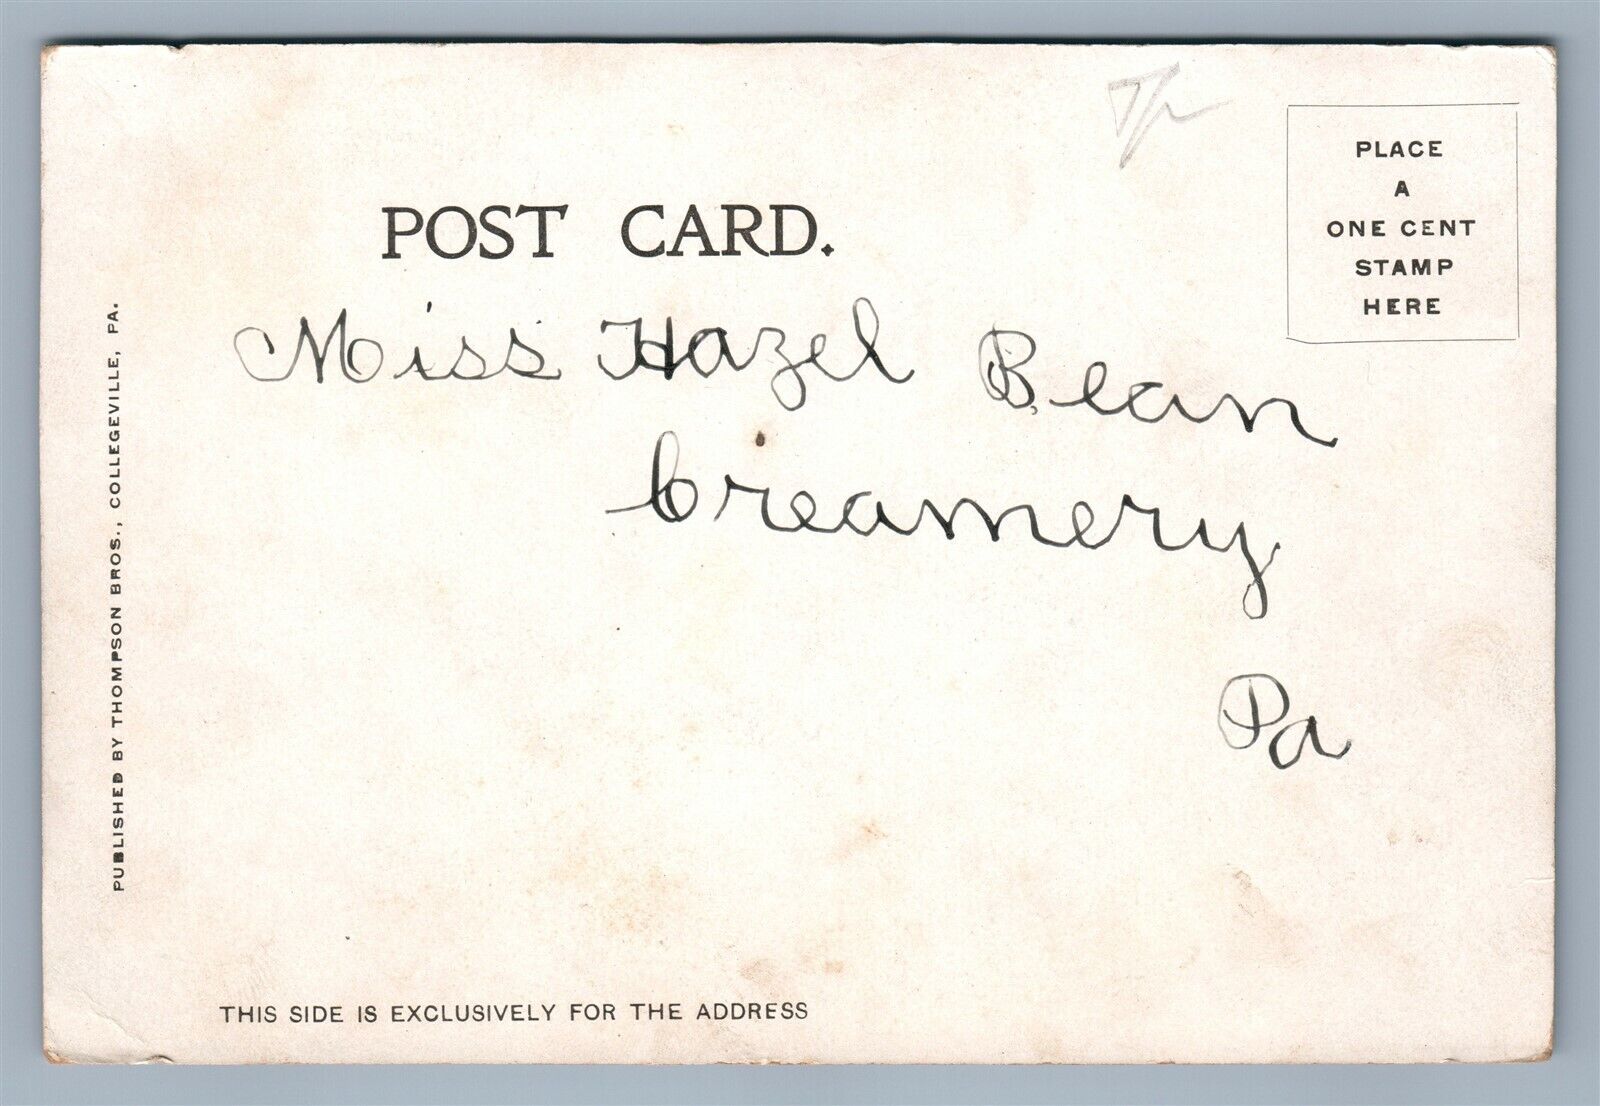 PLACE
A
ONE CENT
STAMP
HERE
POST CARD.
Miss Hazel Bean
Creamery
Pa
PUBLISHED BY THOMPSON BROS., COLLEGEVILLE, PA.
THIS SIDE IS EXCLUSIVELY FOR THE ADDRESS